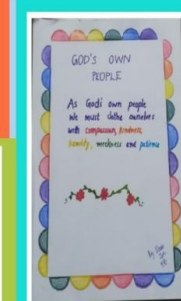 GOD'S OWN
PEOPLE
As God's own people
We must clothe ourselves
with compassion, kindness,
humility, meekness and patience
By